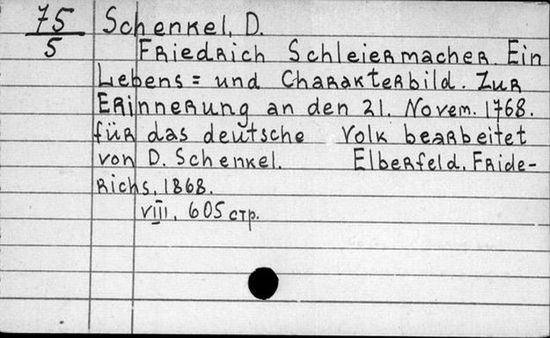 75 Schenkel, D.
5 Friedrich Schleiermacher. Ein
Lebens= und Charakterbild. Zur
Erinnerung an den 21. Novem. 1768.
für das deutsche Volk bearbeitet
von D. Schenkel. Elberfeld, Fride-
richs, 1868.
VIII, 605 стр.